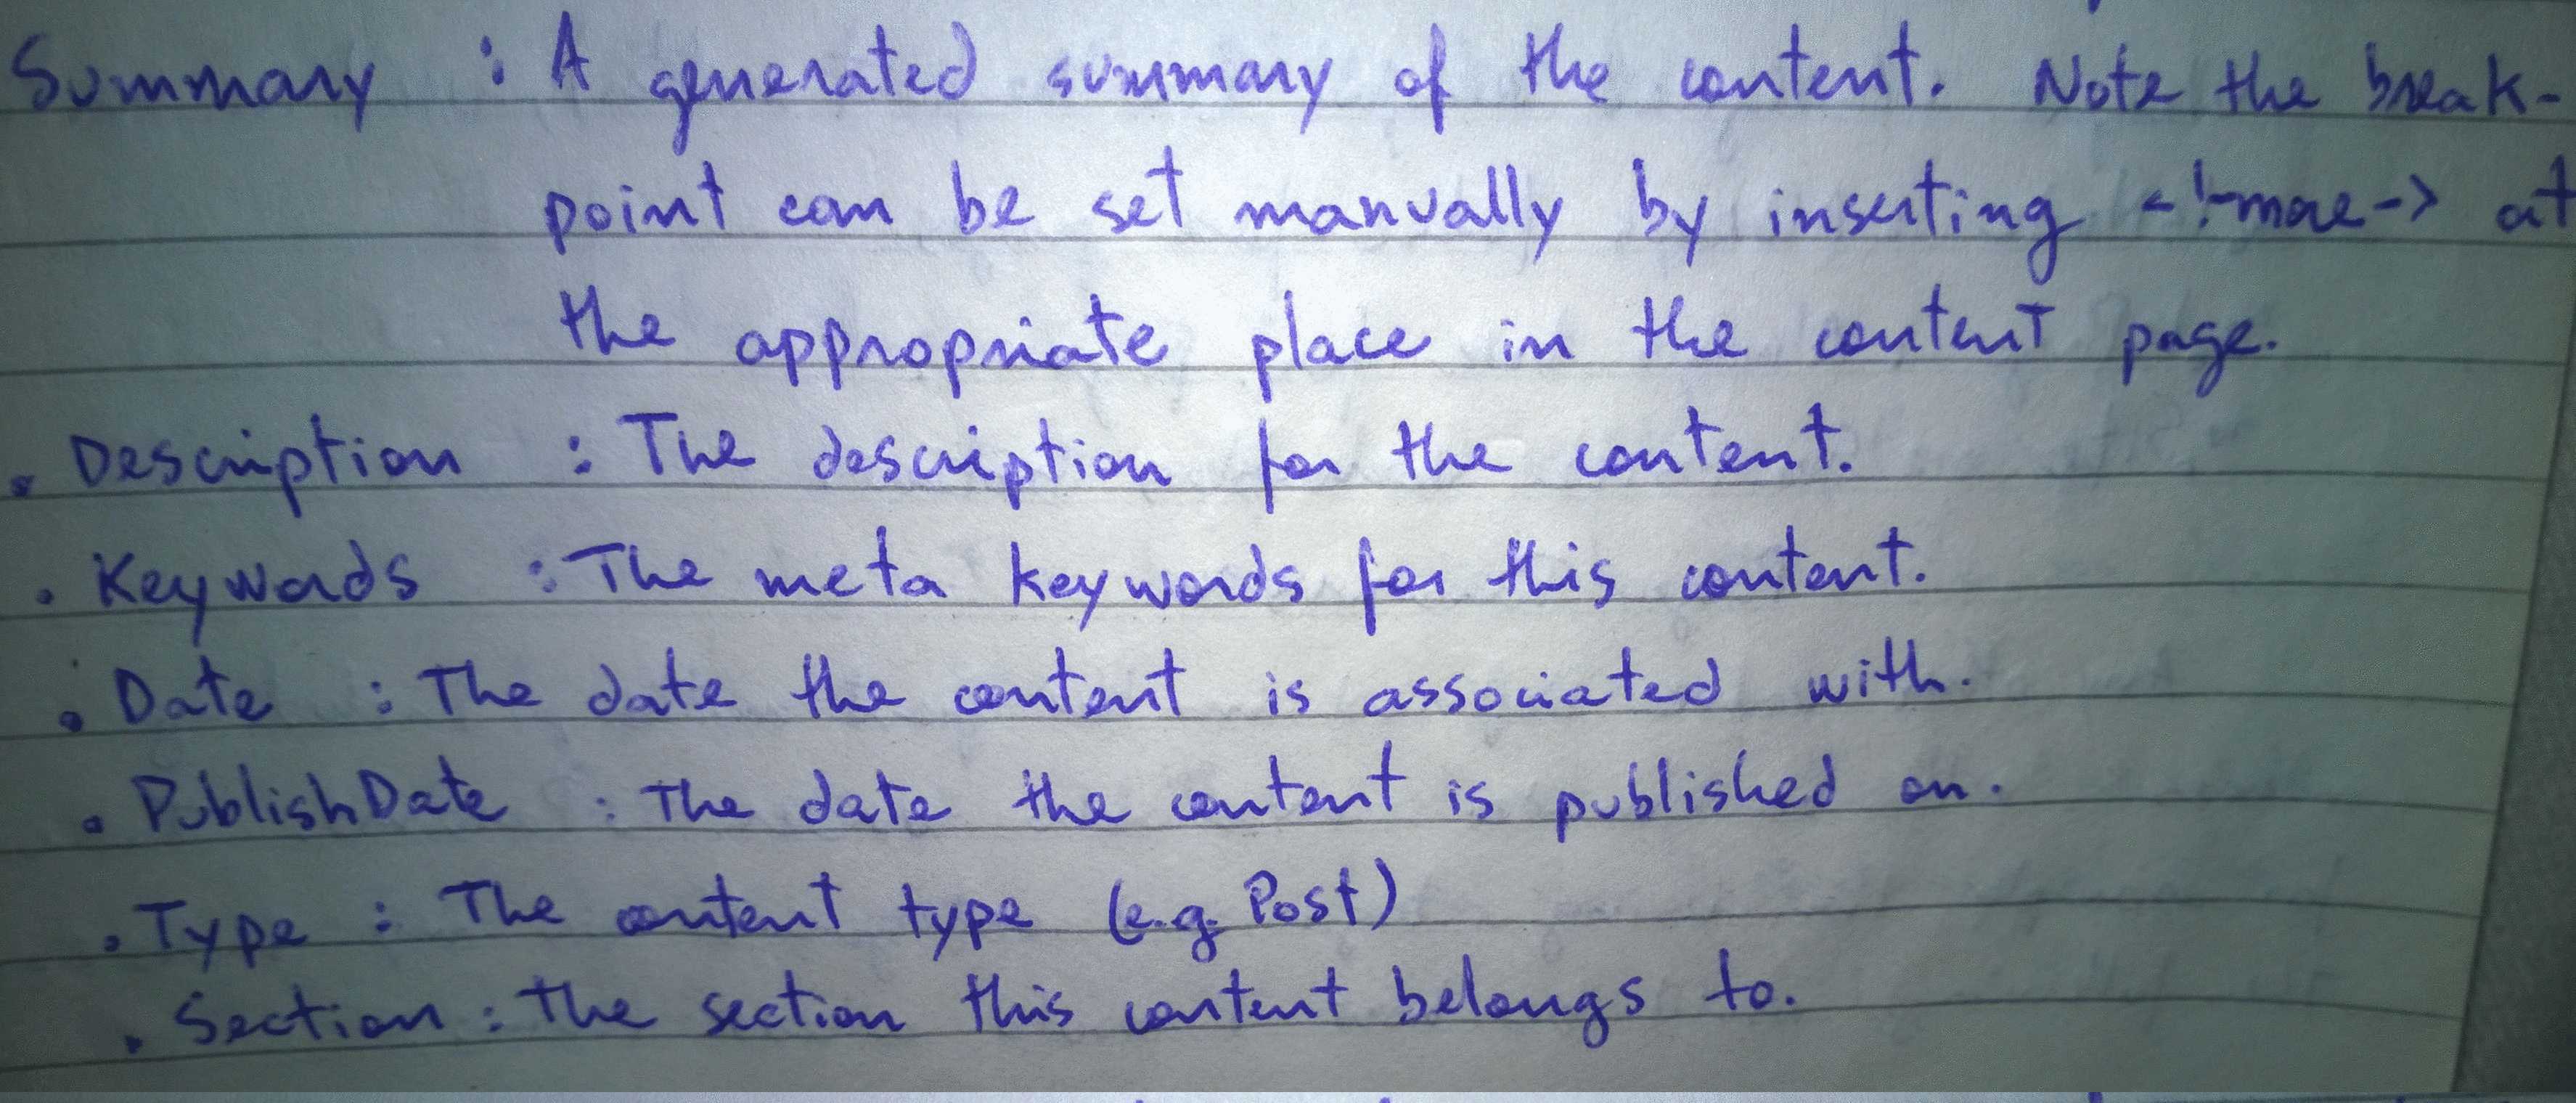 Summary : A generated summary of the content. Note the break-
point can be set manually by inserting <!-more-> at
the appropriate place in the content page.
• Description : The description for the content.
• Keywords : The meta keywords for this content.
• Date : The date the content is associated with.
• PublishDate : The date the content is published on.
• Type : The content type (e.g. Post)
• Section : the section this content belongs to.